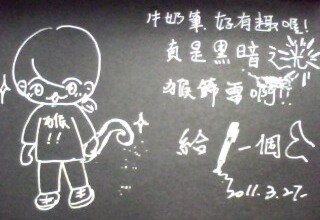 牛奶筆 好有趣喔!
真是黑暗之光
猴飾雪啊!!
給 一個
2011.3.27.
猴
!!